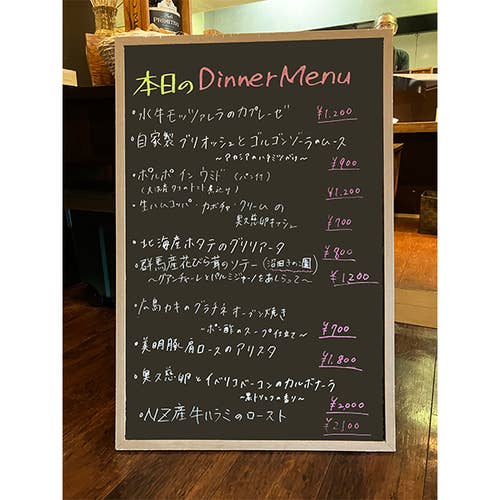 本日の Dinner Menu
・水牛モッツァレラのカプレーゼ
¥1.200
・自家製ブリオッシュとゴルゴンゾーラのムース
〜アカシアのハチミツがけ〜
¥900
・ポルポ イン ウミド (パン付)
のトマト煮込み)
¥1.200
・生ハムコッパ・カボチャ・クリームの
奥久慈卵キッシュ
¥700
・北海産ホタテのグリリアータ
¥800
・群馬産花びら茸のソテー (沼田きのこ園)
〜グアンチャーレとパルミジャーノをあしらって〜
¥1200
・広島カキのグラチネ オーブン焼き
〜ポン酢のスープ仕立て〜
¥700
・美明豚肩ロースのアリスタ
¥1.800
・奥久慈卵とイベリコベーコンのカルボナーラ
〜黒トリュフの香り〜
¥2000
・NZ産牛ハラミのロースト
¥2100